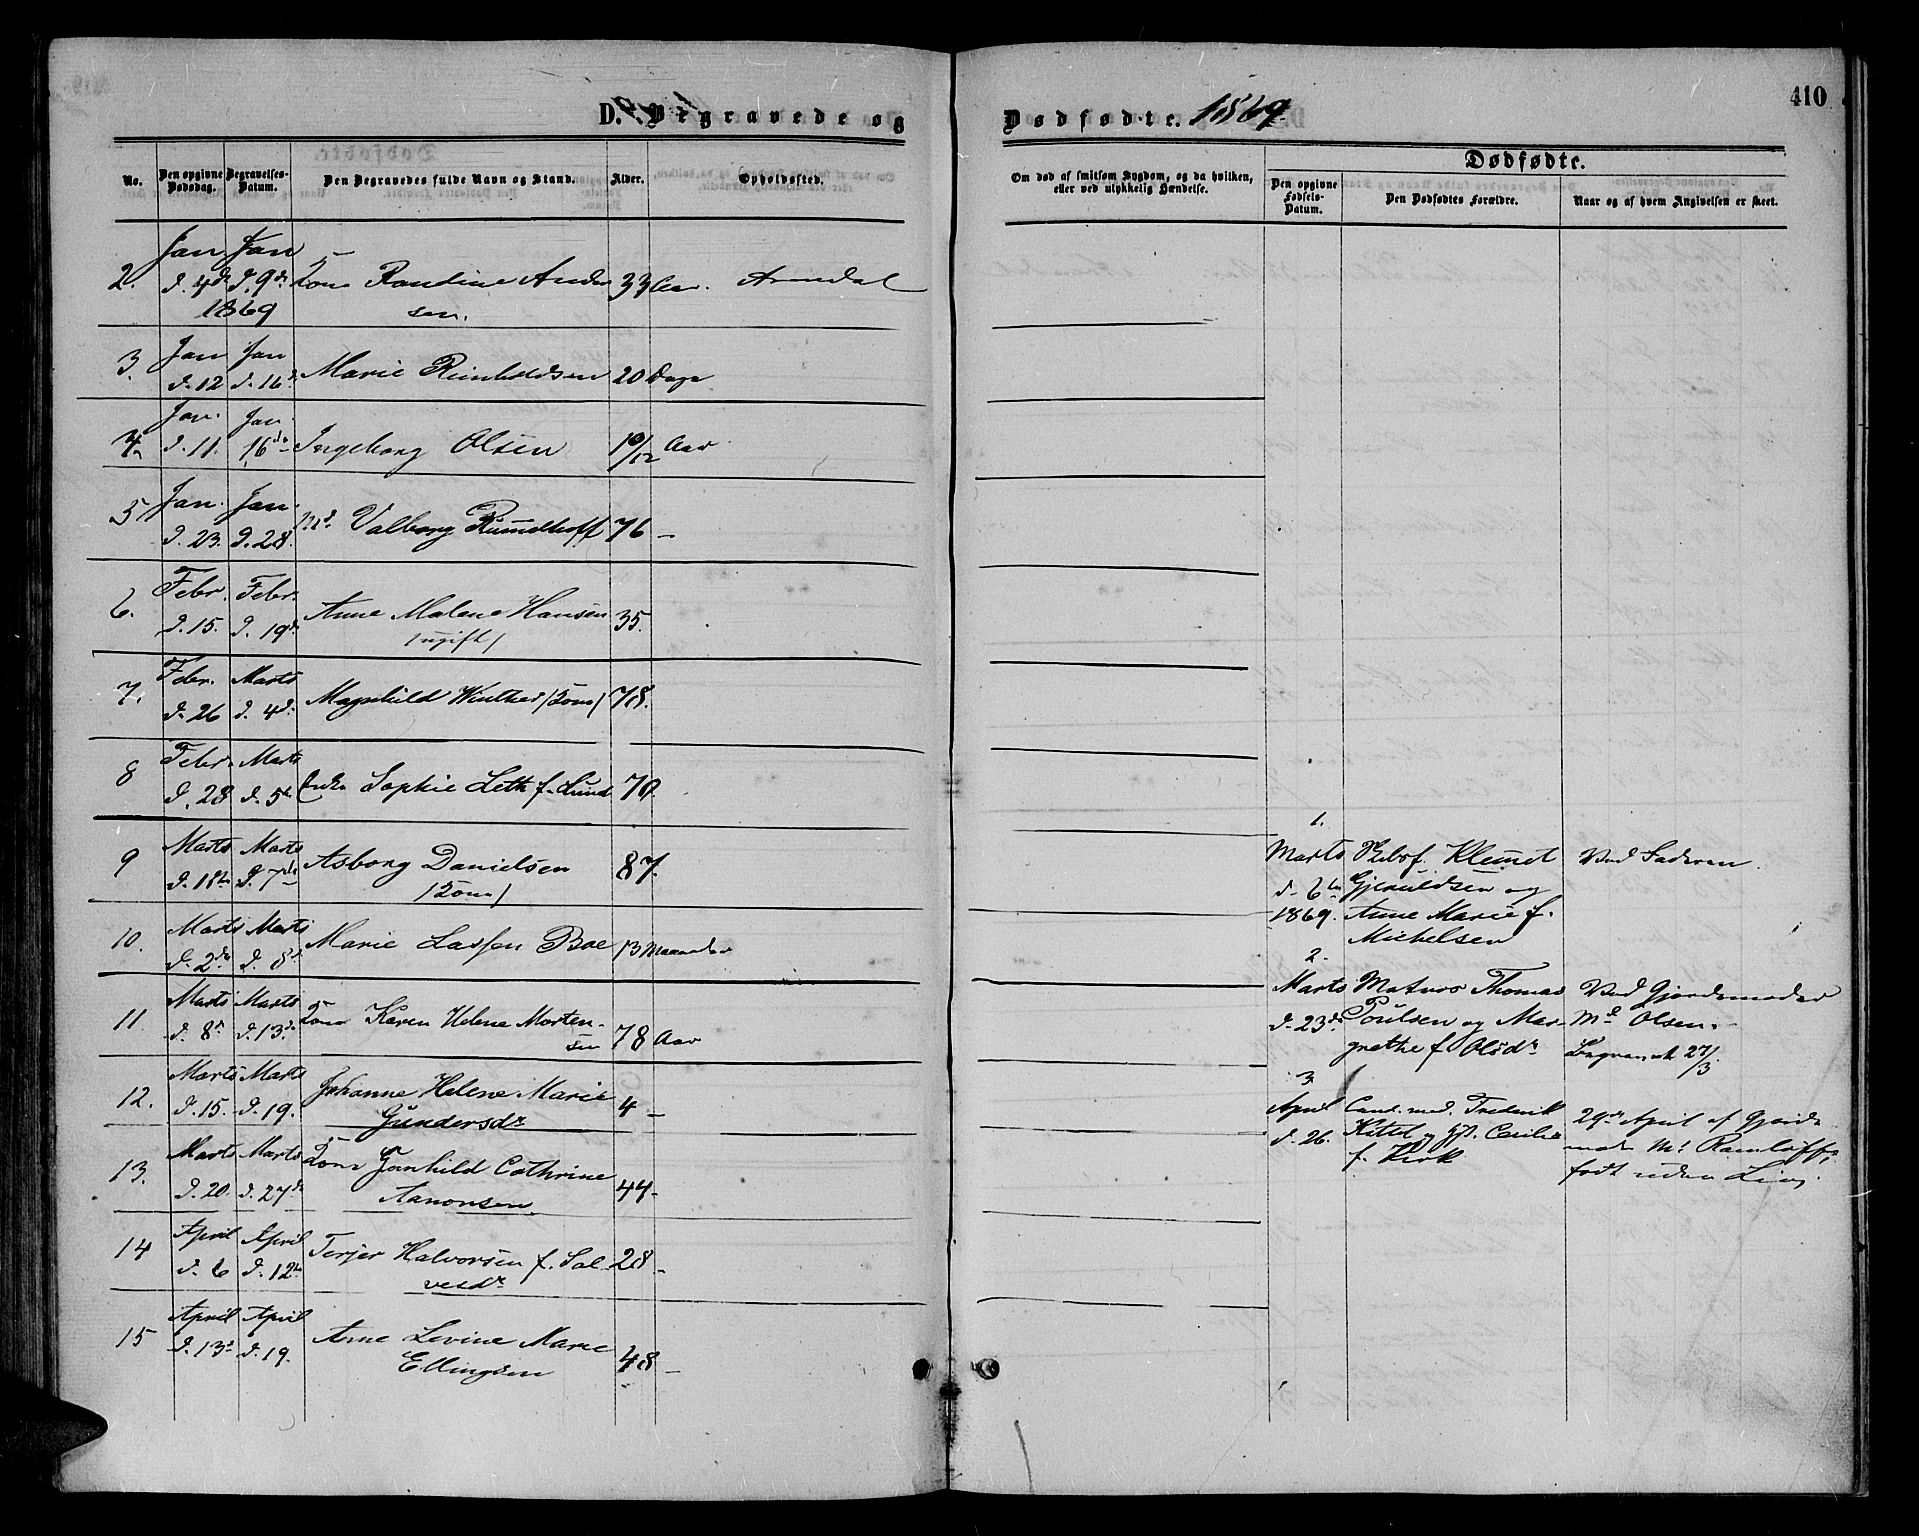 410
D. Begravede og Dødfødte. 1869.
No.
Den opgivne Dødsdag.
Begravelses-Datum.
Den Begravedes fulde Navn og Stand.
Alder.
Opholdssted.
Om død af smitsom Sygdom, og da hvilken, eller ved ulykkelig Hændelse.
Dødfødte.
Den opgivne Fødsels-Datum.
Den Dødfødtes Forældre.
Naar og af hvem Angivelsen er skeet.
2. Jan Jan
d. 4d d. 9de Kone Randine Ander 33 Aar. Arendal
1869 sen.
3. Jan Jan
d. 12 d. 16d Marie Reinholdsen 20 Dage
4. Jan. Jan.
d. 11. 16de Ingeborg Olsen 10/12 Aar
5 Jan. Jan.
d. 23. d. 28. Md. Valborg Rumelhoff 76 -
6. Febr. Febr.
d. 15. d. 19d Anne Malene Hansen 35.
/ugift/
7. Febr. Marts
d. 26 d. 4d. Magnhild Winther /Kone/ 78.
8 Febr. Marts
d. 28 d. 5te Enke Sophie Leth f. Lund 70.
9 Marts Marts
d. 1ste d. 7de Asborg Danielsen 87.
/Kone/
10. Marts Marts
d. 2de d. 8d Marie Lassen Boe 13 Maaneder
11. Marts Marts
d. 8d d. 13de Kone Karen Helene Morten-
sen 78 Aar
12. Marts Marts
d. 15. d. 19. Johanne Helene Marie 4 -
Gundersdr
13. Marts Marts
d. 20. d. 27de Kone Gunhild Cathrine 44 -
Aanonsen
14 April April
d. 6 d. 12te Terjer Halvorsen f. Sal- 28 -
vesdr
15 April April
d. 13d d. 19. Anne Levine Marie 48 -
Ellingsen
1.
Marts Klemet Ved Faderen.
d. 6te Gjeruldsen og
1869. Anne Marie f.
Michelsen
2.
Marts Matros Thomas Ved Gjordemoder
d. 23de Poulsen og Mar- Md Olsen.
grethe f. Olsdr Begravet 27/3
3.
April Cand. med. Frederik 29de April af Gjorde
d. 26. Kittel og Cecilie mod. Md. Ramloff,
f. Kirk født uden Liv.